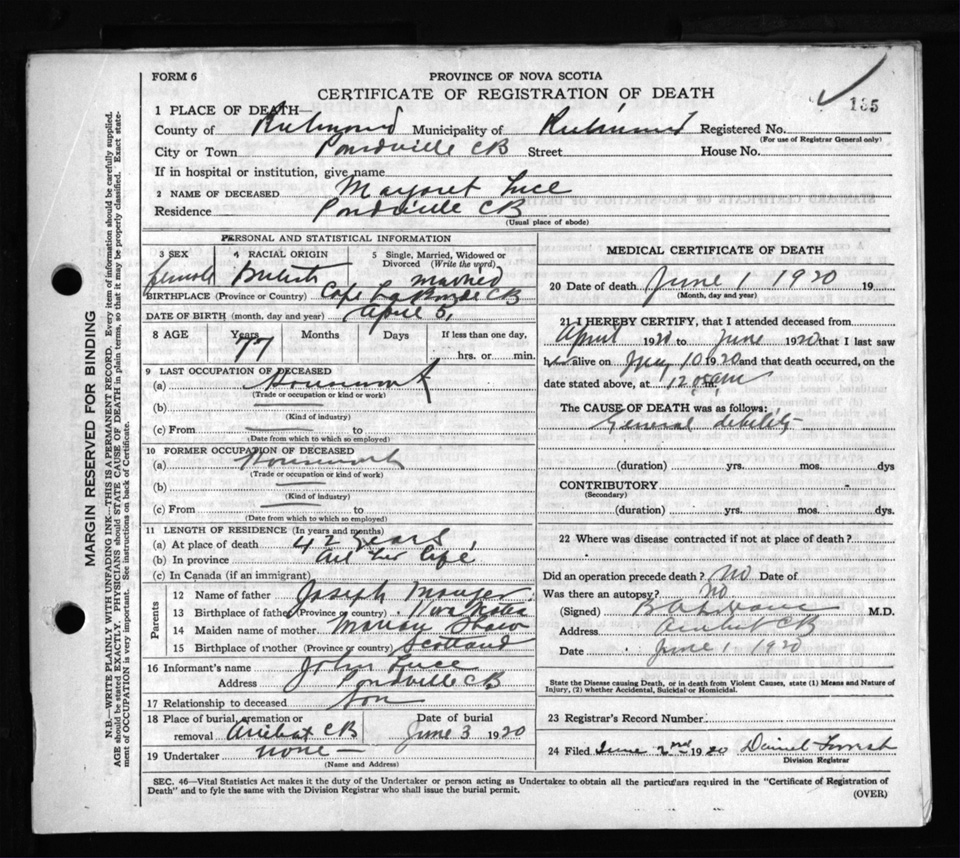 FORM 6
PROVINCE OF NOVA SCOTIA
CERTIFICATE OF REGISTRATION OF DEATH
185
1 PLACE OF DEATH—
County of Richmond Municipality of Richmond Registered No.
(For use of Registrar General only)
City or Town Pondville CB Street House No.
If in hospital or institution, give name
2 NAME OF DECEASED Margaret Luce
Residence Pondville CB
(Usual place of abode)
PERSONAL AND STATISTICAL INFORMATION
3 SEX female
4 RACIAL ORIGIN British
5 Single, Married, Widowed or Divorced (Write the word) married
BIRTHPLACE (Province or Country) Cape La Ronde CB
DATE OF BIRTH (month, day and year) April 5,
8 AGE Years 77 Months Days If less than one day, hrs. or min.
9 LAST OCCUPATION OF DECEASED
(a) Housework
(Trade or occupation or kind or work)
(b)
(Kind of industry)
(c) From to
(Date from which to which so employed)
10 FORMER OCCUPATION OF DECEASED
(a) Housework
(Trade or occupation or kind of work)
(b)
(Kind of industry)
(c) From to
(Date from which to which so employed)
11 LENGTH OF RESIDENCE (In years and months)
(a) At place of death 42 years
(b) In province all her life
(c) In Canada (if an immigrant)
Parents
12 Name of father Joseph Mauger
13 Birthplace of father (Province or country) Nova Scotia
14 Maiden name of mother Shaw
15 Birthplace of mother (Province or country) Scotland
16 Informant's name John Luce
Address Pondville CB
17 Relationship to deceased Son
18 Place of burial, cremation or removal Arichat CB Date of burial June 3 1920
19 Undertaker none —
(Name and Address)
MEDICAL CERTIFICATE OF DEATH
20 Date of death June 1 1920 19
(Month, day and year)
21 I HEREBY CERTIFY, that I attended deceased from
April 1920 to June 1920 that I last saw
her alive on May 10 1920 and that death occurred, on the
date stated above, at 12 05 am m.
The CAUSE OF DEATH was as follows:
General debility
(duration) yrs. mos. dys
CONTRIBUTORY
(Secondary)
(duration) yrs. mos. dys.
22 Where was disease contracted if not at place of death?
Did an operation precede death? No Date of
Was there an autopsy? No
(Signed) M.D.
Address Arichat CB
Date June 1 1920
State the Disease causing Death, or in death from Violent Causes, state (1) Means and Nature of
Injury, (2) whether Accidental, Suicidal or Homicidal.
23 Registrar's Record Number
24 Filed June 2nd 1920 Daniel
Division Registrar
SEC. 46—Vital Statistics Act makes it the duty of the Undertaker or person acting as Undertaker to obtain all the particulars required in the "Certificate of Registration of
Death" and to fyle the same with the Division Registrar who shall issue the burial permit.
(OVER)
MARGIN RESERVED FOR BINDING
N.B.—WRITE PLAINLY WITH UNFADING INK—THIS IS A PERMANENT RECORD. Every item of information should be carefully supplied.
AGE should be stated EXACTLY. PHYSICIANS should STATE CAUSE OF DEATH in plain terms, so that it may be properly classified. Exact state-
ment of OCCUPATION is very important. See instructions on back of Certificate.